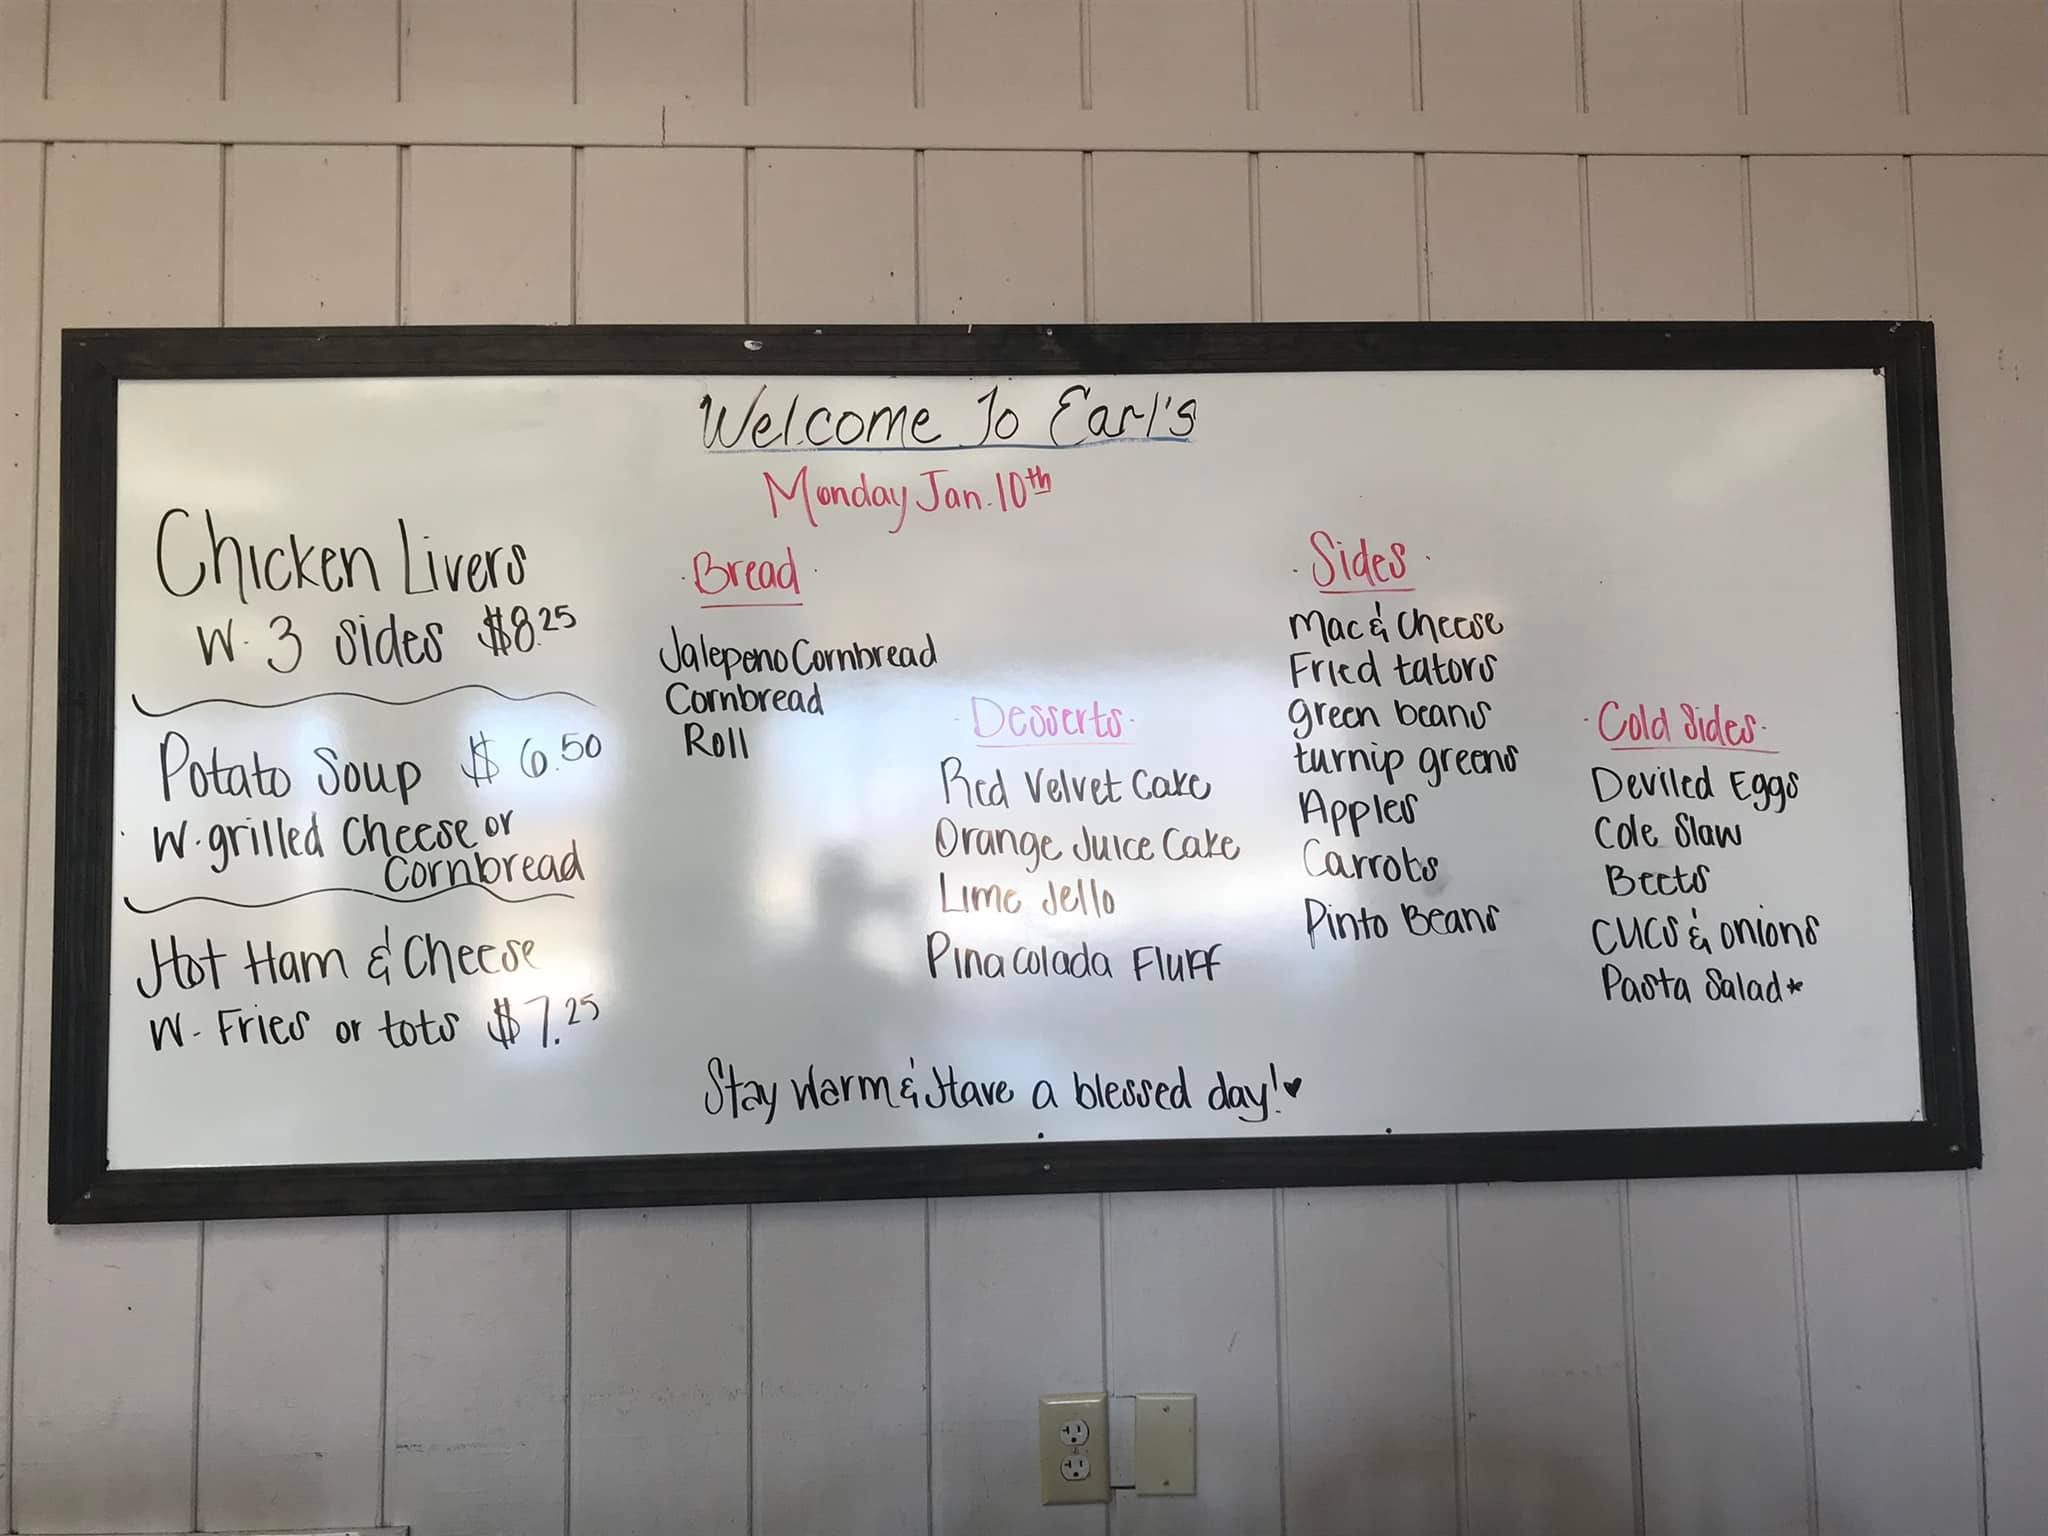 Welcome To Earl's
Monday Jan. 10th
Chicken Livers
W. 3 sides $8.25
Potato Soup $6.50
W. grilled Cheese or
Cornbread
Hot Ham & Cheese
W- Fries or tots $7.25
· Bread ·
Jalepeno Cornbread
Cornbread
Roll
· Desserts ·
Red Velvet Cake
Orange Juice Cake
Lime Jello
Pina Colada Fluff
· Sides ·
Mac & Cheese
Fried tators
green beans
turnip greens
Apples
Carrots
Pinto Beans
· Cold Sides ·
Deviled Eggs
Cole Slaw
Beets
Cucs & onions
Pasta Salad*
Stay Warm & Have a blessed day! ♥